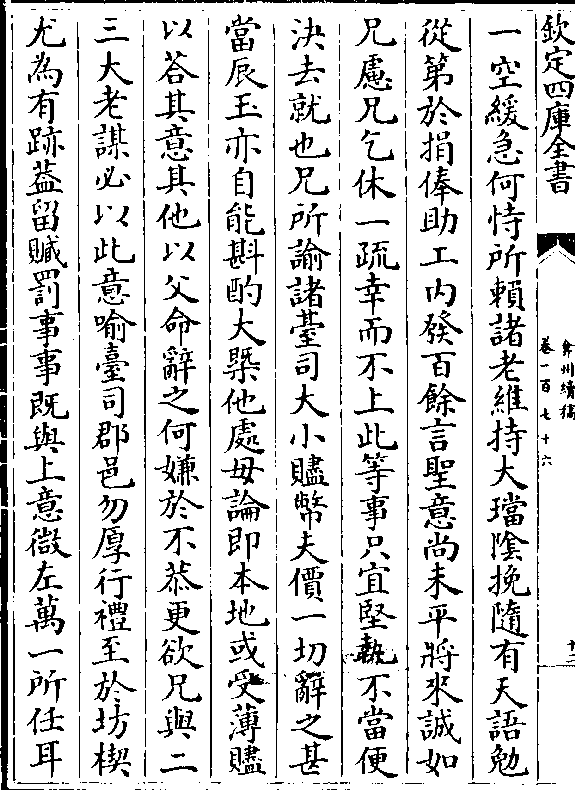 欽定四庫全書
弇州續稿
卷一百七十六
十二
一空緩急何恃所賴諸老維持大璫陰挽隨有天語勉
從第於捐俸助工内發百餘言聖意尚未平將來誠如
兄慮兄乞休一疏幸而不上此等事只宜堅執不當便
決去就也兄所諭諸臺司大小贐幣夫價一切辭之甚
當辰玉亦自能斟酌大槩他處毋論即本地或受薄贐
以荅其意其他以父命辭之何嫌於不恭更欲兄與二
三大老謀必以此意喻臺司郡邑勿厚行禮至於坊楔
尤為有跡葢留贓罰事事既與上意微左萬一所任耳